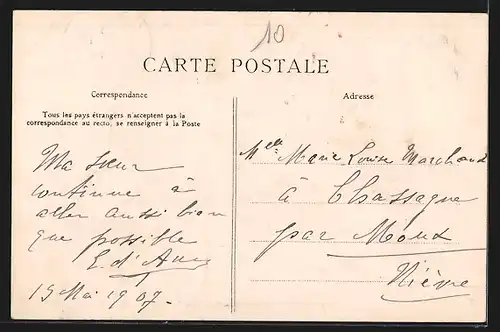 10
CARTE POSTALE
Correspondance
Tous les pays étrangers n'acceptent pas la
correspondance au recto, se renseigner à la Poste
Ma sœur
continue à
aller aussi bien
que possible
E. d'
15 Mai 1907.
Adresse
Melle Marie Louise Marchand
à Chassagne
par Moux
Nièvre